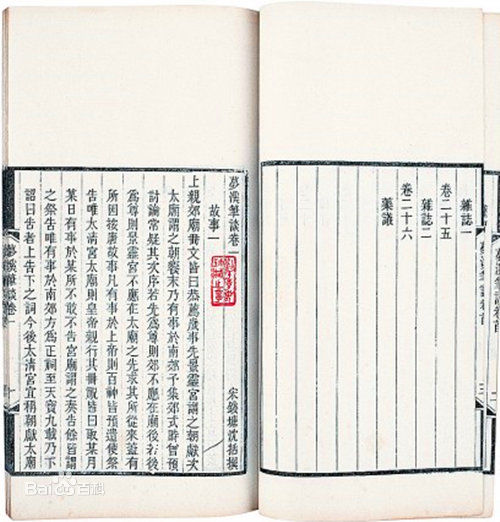 夢溪筆談卷首
三
雜誌一
卷二十五
雜誌二
卷二十六
藥議
夢溪筆談卷一
宋錢塘沈括撰
故事一
上親郊廟冊文皆曰恭薦歲事先景靈宮謂之朝獻次
太廟謂之朝饗末乃有事於南郊予集郊式時曾預
討論常疑其次序若先為尊則郊不應在廟後若後
為尊則景靈宮不應在太廟之先求其所從來蓋有
所因按唐故事凡有事於上帝則百神皆預遣使祭
告唯太清宮太廟則皇帝親行其冊祝皆曰取某月
某日有事於某所不敢不告宮廟謂之奏告餘皆謂
之祭告唯有事於南郊方為正祠至天寶九載乃下
詔曰告者上告下之詞今後太清宮宜稱朝獻太廟
夢溪筆談卷一
Baidu百科